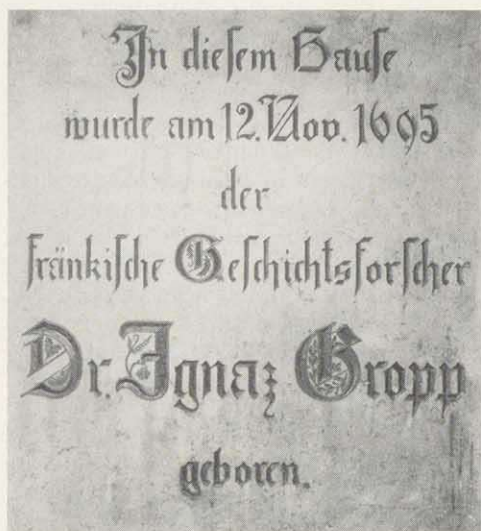 In diesem Hause
wurde am 12. Nov. 1695
der
fränkische Geschichtsforscher
Dr. Ignaz Gropp
geboren.